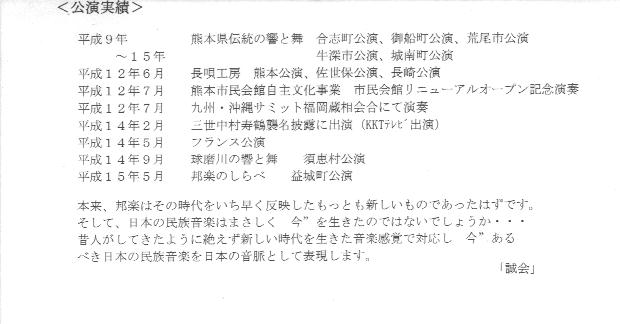 ＜公演実績＞
平成９年　　　　熊本県伝統の響と舞　合志町公演、御船町公演、荒尾市公演
～１５年　　　　　　　　　　　　　牛深市公演、城南町公演
平成１２年６月　　長唄工房　熊本公演、佐世保公演、長崎公演
平成１２年７月　　熊本市民会館自主文化事業　市民会館リニューアルオープン記念演奏
平成１２年７月　　九州・沖縄サミット福岡蔵相会合にて演奏
平成１４年２月　　三世中村寿鶴襲名披露に出演（KKTﾃﾚﾋﾞ出演）
平成１４年５月　　フランス公演
平成１４年９月　　球磨川の響と舞　　須恵村公演
平成１５年５月　　邦楽のしらべ　　益城町公演
本来、邦楽はその時代をいち早く反映したもっとも新しいものであったはずです。
そして、日本の民族音楽はまさしく　今”を生きたのではないでしょうか・・・
昔人がしてきたように絶えず新しい時代を生きた音楽感覚で対応し　今”ある
べき日本の民族音楽を日本の音脈として表現します。
「誠会」